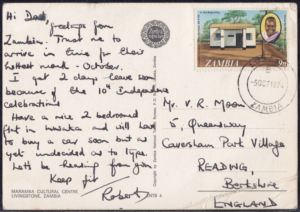 Hi Dad,
Feelings from
Zambia. Trust me to
arrive in time for their
hottest month - October.
I get 2 days leave soon
because of the 10th Independence
celebrations
Have a nice 2 bedroomed
flat in Lusaka and will have
to buy a car soon but as
yet undecided as to type.
Let's be hearing from you
Keep fit
Robert
MARAMBA CULTURAL CENTRE
LIVINGSTONE, ZAMBIA
ZAMBIA
9n
5 OCT 1974
ZAMBIA
Mr. V. R. Moon
5, Queensway
Caversham Park Village
READING,
Berkshire
ENGLAND